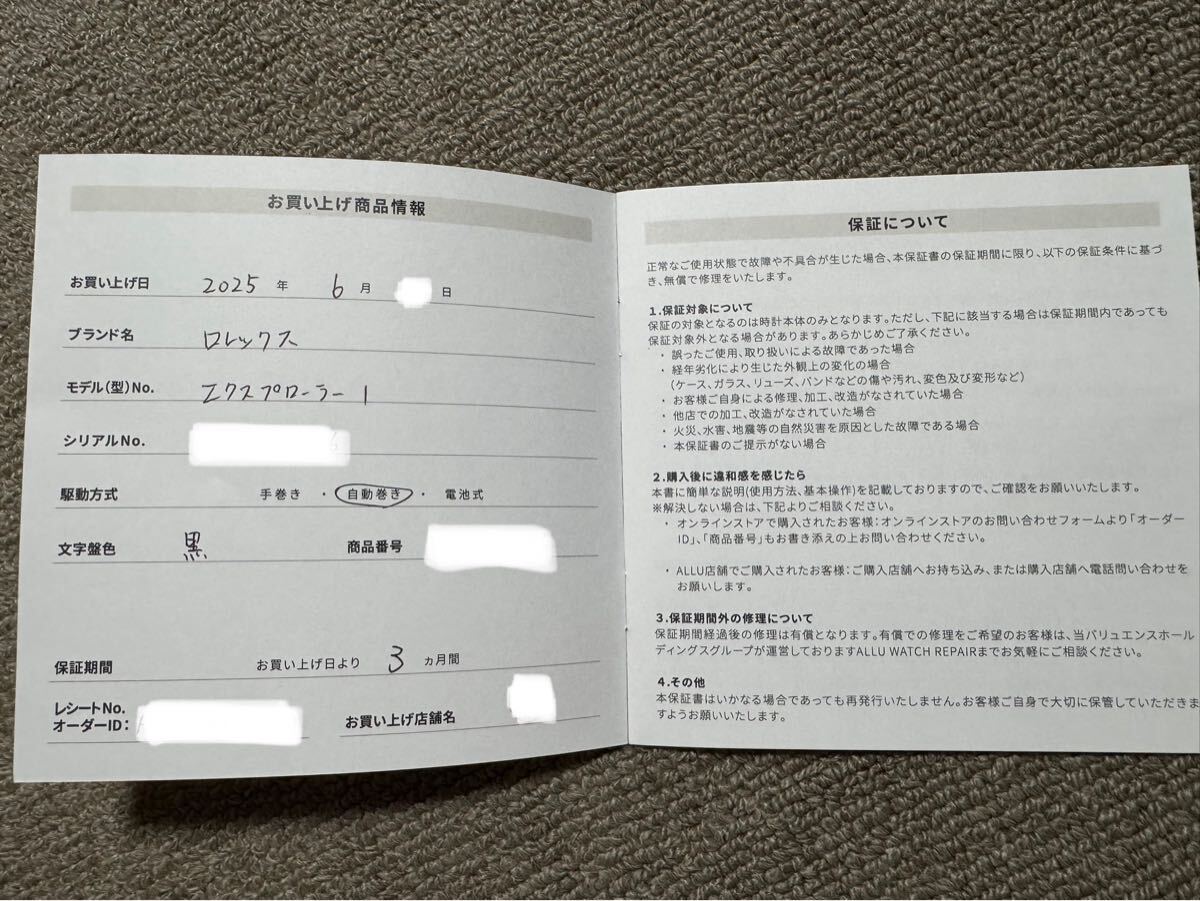 お買い上げ商品情報
お買い上げ日 2025 年 6 月 日
ブランド名 ロレックス
モデル(型)No. エクスプローラー1
シリアルNo.
駆動方式 手巻き ・ 自動巻き ・ 電池式
文字盤色 黒 商品番号
保証期間 お買い上げ日より 3 カ月間
レシートNo.
オーダーID: お買い上げ店舗名
保証について
正常なご使用状態で故障や不具合が生じた場合、本保証書の保証期間に限り、以下の保証条件に基づ
き、無償で修理をいたします。
1.保証対象について
保証の対象となるのは時計本体のみとなります。ただし、下記に該当する場合は保証期間内であっても
保証対象外となる場合があります。あらかじめご了承ください。
・ 誤ったご使用、取り扱いによる故障であった場合
・ 経年劣化により生じた外観上の変化の場合
(ケース、ガラス、リューズ、バンドなどの傷や汚れ、変色及び変形など)
・ お客様ご自身による修理、加工、改造がなされていた場合
・ 他店での加工、改造がなされていた場合
・ 火災、水害、地震等の自然災害を原因とした故障である場合
・ 本保証書のご提示がない場合
2.購入後に違和感を感じたら
本書に簡単な説明(使用方法、基本操作)を記載しておりますので、ご確認をお願いいたします。
※解決しない場合は、下記よりご相談ください。
・ オンラインストアで購入されたお客様:オンラインストアのお問い合わせフォームより「オーダー
ID」、「商品番号」もお書き添えの上お問い合わせください。
・ ALLU店舗でご購入されたお客様:ご購入店舗へお持ち込み、または購入店舗へ電話問い合わせを
お願いします。
3.保証期間外の修理について
保証期間経過後の修理は有償となります。有償での修理をご希望のお客様は、当バリュエンスホール
ディングスグループが運営しておりますALLU WATCH REPAIRまでお気軽にご相談ください。
4.その他
本保証書はいかなる場合であっても再発行いたしません。お客様ご自身で大切に保管していただきま
すようお願いいたします。